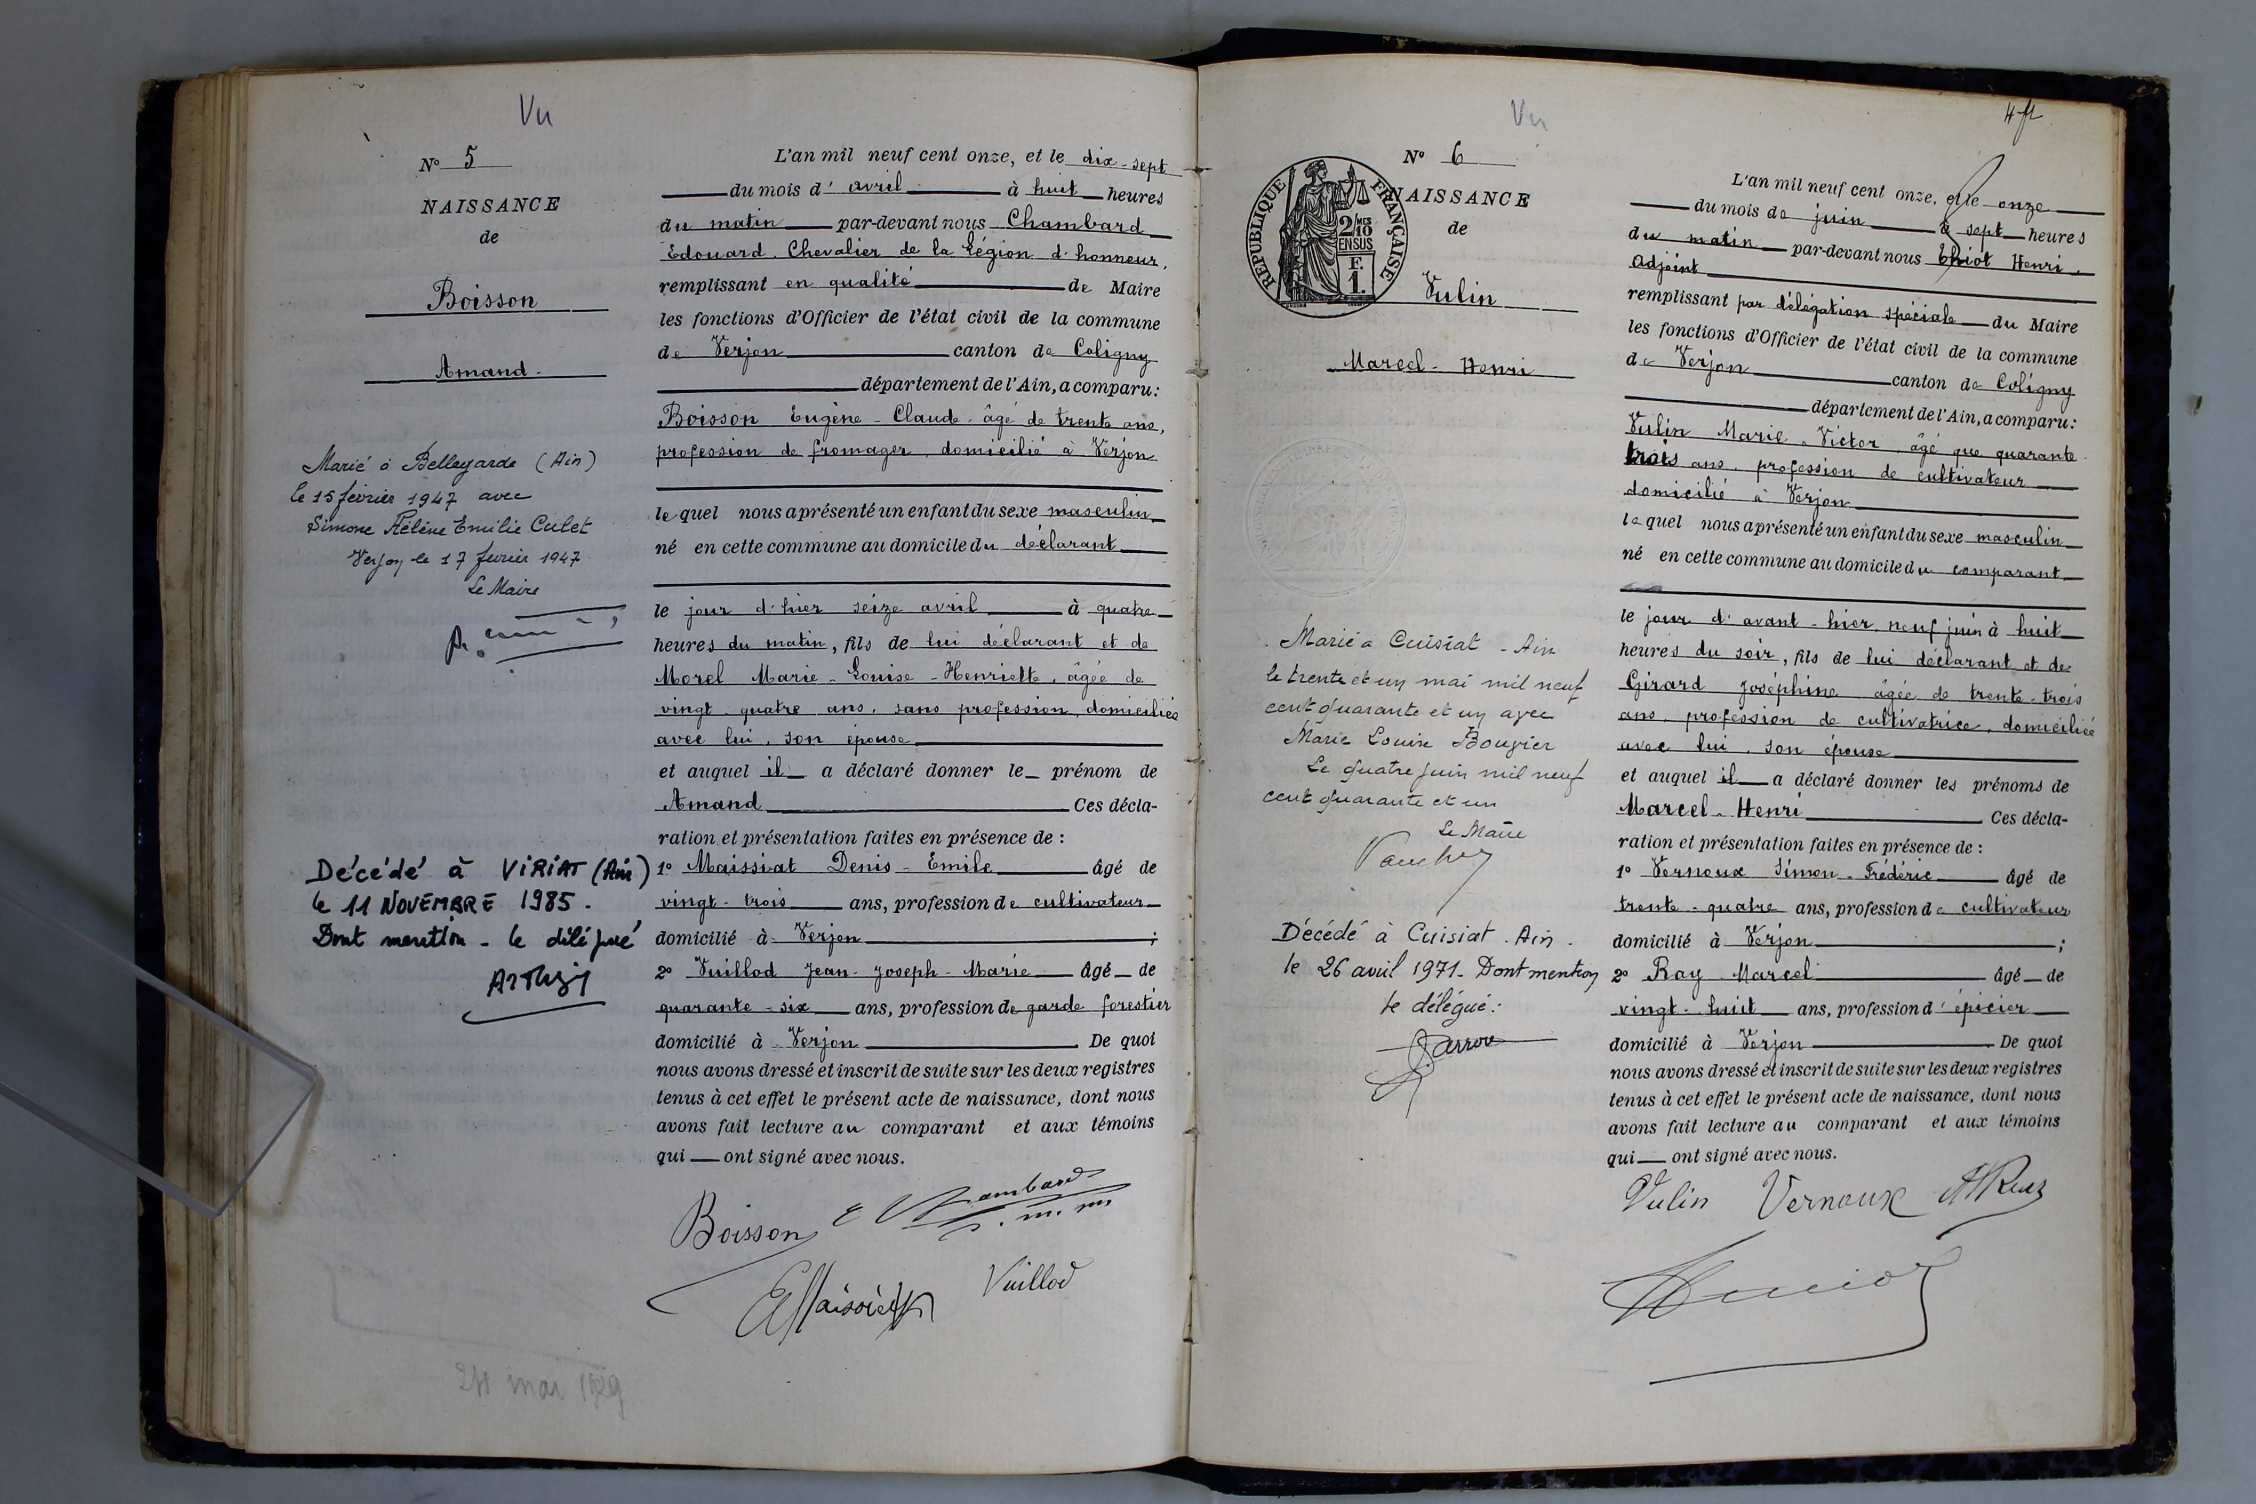 Vu
N° 5
NAISSANCE
de
Boisson
Amand.
Marié à Bellegarde (Ain)
le 15 février 1947 avec
Simone Hélène Emilie Culet
Verjon le 17 février 1947
Le Maire
Décédé à VIRIAT (Ain)
le 11 NOVEMBRE 1985.
Dont mention - le délégué
L'an mil neuf cent onze, et le dix-sept
du mois d'avril à huit heures
du matin par-devant nous Chambard
Edouard. Chevalier de la Légion d'honneur,
remplissant en qualité de Maire
les fonctions d'Officier de l'état civil de la commune
de Verjon canton de Coligny
département de l'Ain, a comparu:
Boisson Eugène-Claude. âgé de trente ans,
profession de fromager, domicilié à Verjon
lequel nous a présenté un enfant du sexe masculin
né en cette commune au domicile du déclarant
le jour d'hier seize avril à quatre
heures du matin, fils de lui déclarant et de
Morel Marie-Louise-Henriette, âgée de
vingt-quatre ans, sans profession, domiciliée
avec lui, son épouse
et auquel il a déclaré donner le prénom de
Amand Ces décla-
ration et présentation faites en présence de :
1° Maissiat Denis-Emile âgé de
vingt-trois ans, profession de cultivateur
domicilié à Verjon ;
2° Vuillod Jean-Joseph-Marie âgé de
quarante-six ans, profession de garde forestier
domicilié à Verjon De quoi
nous avons dressé et inscrit de suite sur les deux registres
tenus à cet effet le présent acte de naissance, dont nous
avons fait lecture au comparant et aux témoins
qui ont signé avec nous.
Boisson E Chambard
Vuillod
24 mai 1929
Vu
N° 6
NAISSANCE
de
REPUBLIQUE FRANÇAISE
2/10 MES
EN SUS
F.
1.
Vulin
Marcel-Henri
Marié à Cuisiat - Ain
le trente et un mai mil neuf
cent quarante et un avec
Marie Louise Bouvier
Le quatre juin mil neuf
cent quarante et un
Le Maire
Décédé à Cuisiat. Ain.
le 26 avril 1971. Dont mention
le délégué:
L'an mil neuf cent onze, et le onze
du mois de juin à sept heures
du matin par-devant nous Thiot Henri,
Adjoint
remplissant par délégation spéciale du Maire
les fonctions d'Officier de l'état civil de la commune
de Verjon canton de Coligny
département de l'Ain, a comparu:
Vulin Marie-Victor, âgé que quarante
trois ans, profession de cultivateur
domicilié à Verjon
lequel nous a présenté un enfant du sexe masculin
né en cette commune au domicile du comparant
le jour d'avant-hier, neuf juin à huit
heures du soir, fils de lui déclarant et de
Girard Joséphine âgée de trente-trois
ans, profession de cultivatrice, domiciliée
avec lui, son épouse
et auquel il a déclaré donner les prénoms de
Marcel-Henri Ces décla-
ration et présentation faites en présence de :
1° Vernoux Simon-Frédéric âgé de
trente-quatre ans, profession de cultivateur
domicilié à Verjon ;
2° Ray Marcel âgé de
vingt-huit ans, profession d'épicier
domicilié à Verjon De quoi
nous avons dressé et inscrit de suite sur les deux registres
tenus à cet effet le présent acte de naissance, dont nous
avons fait lecture au comparant et aux témoins
qui ont signé avec nous.
Vulin Vernoux